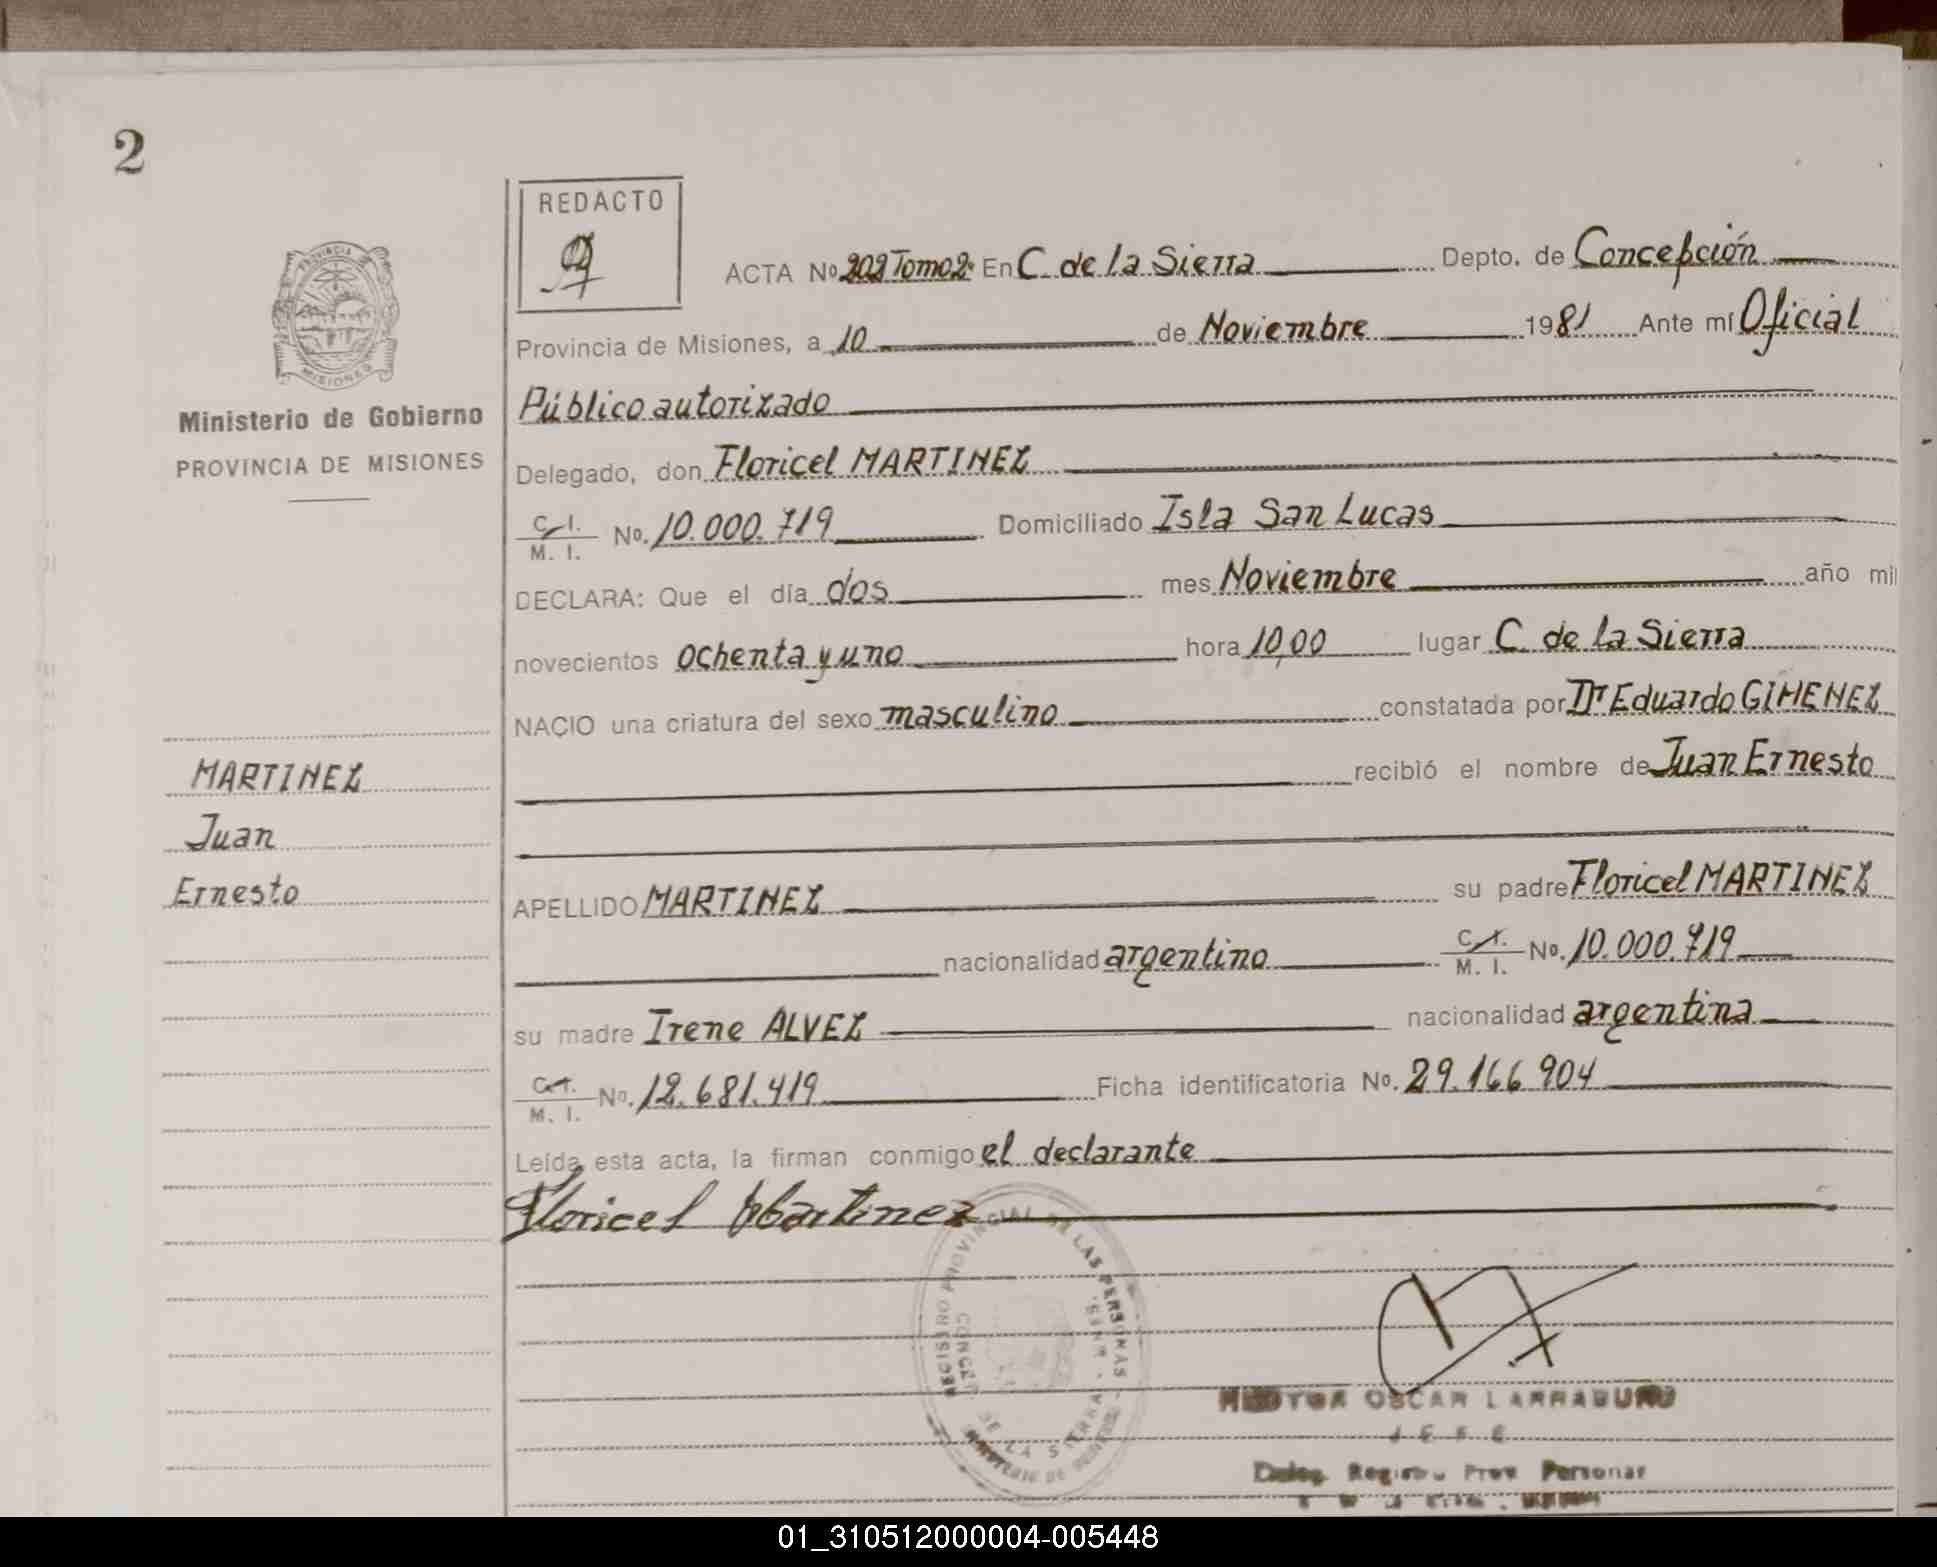 2
REDACTO
PROVINCIA
MISIONES
ACTA No 202 Tomo 2º En C. de la Sierra Depto. de Concepción
Provincia de Misiones, a 10 de Noviembre 1981 Ante mí Oficial
Ministerio de Gobierno
Público autorizado
PROVINCIA DE MISIONES
Delegado, don Floricel MARTINEZ
C. I.
M. I. No. 10.000.719 Domiciliado Isla San Lucas
DECLARA: Que el día dos mes Noviembre año mil
novecientos ochenta y uno hora 10,00 lugar C. de la Sierra
NACIO una criatura del sexo masculino constatada por Dr Eduardo GIMENEZ
MARTINEZ
recibió el nombre de Juan Ernesto
Juan
Ernesto
APELLIDO MARTINEZ su padre Floricel MARTINEZ
nacionalidad argentino C. I. M. I. No. 10.000.719
su madre Irene ALVEZ nacionalidad argentina
C. I.
M. I. No. 12.681.419 Ficha identificatoria No. 29.166.904
Leída esta acta, la firman conmigo el declarante
Floricel Martinez
PROVINCIAL DE LAS PERSONAS
DE LA SIERRA
OSCAR LARRABURU
JEFE
Deleg. Registro Prov Personas
01_310512000004-005448